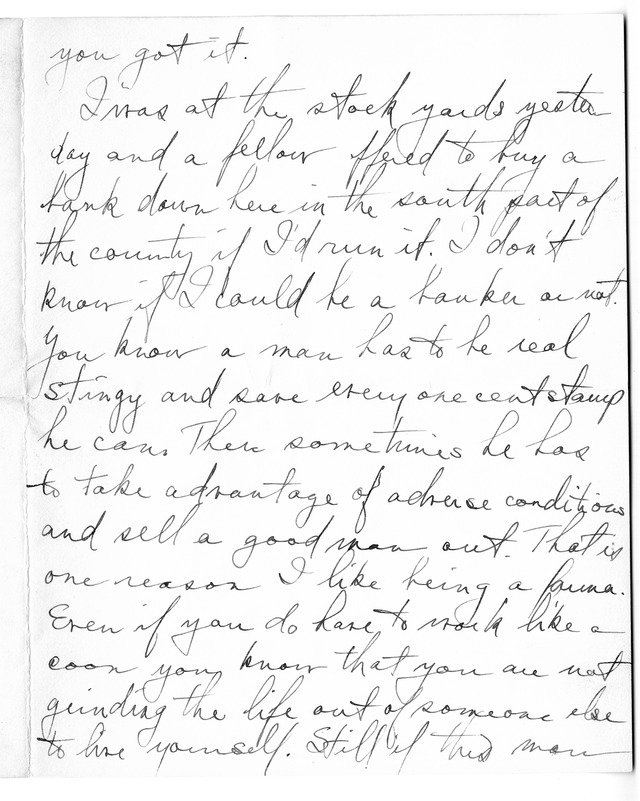 you got it.
I was at the stock yards yester
day and a fellow offered to buy a
bank down here in the south part of
the county if I'd run it. I don't
know if I could be a banker or not.
You know a man has to be real
stingy and save every one cent stamp
he can. Then sometimes he has
to take advantage of adverse conditions
and sell a good man out. That is
one reason I like being a farmer.
Even if you do have to work like a
coon you know that you are not
grinding the life out of someone else
to live yourself. Still if this man